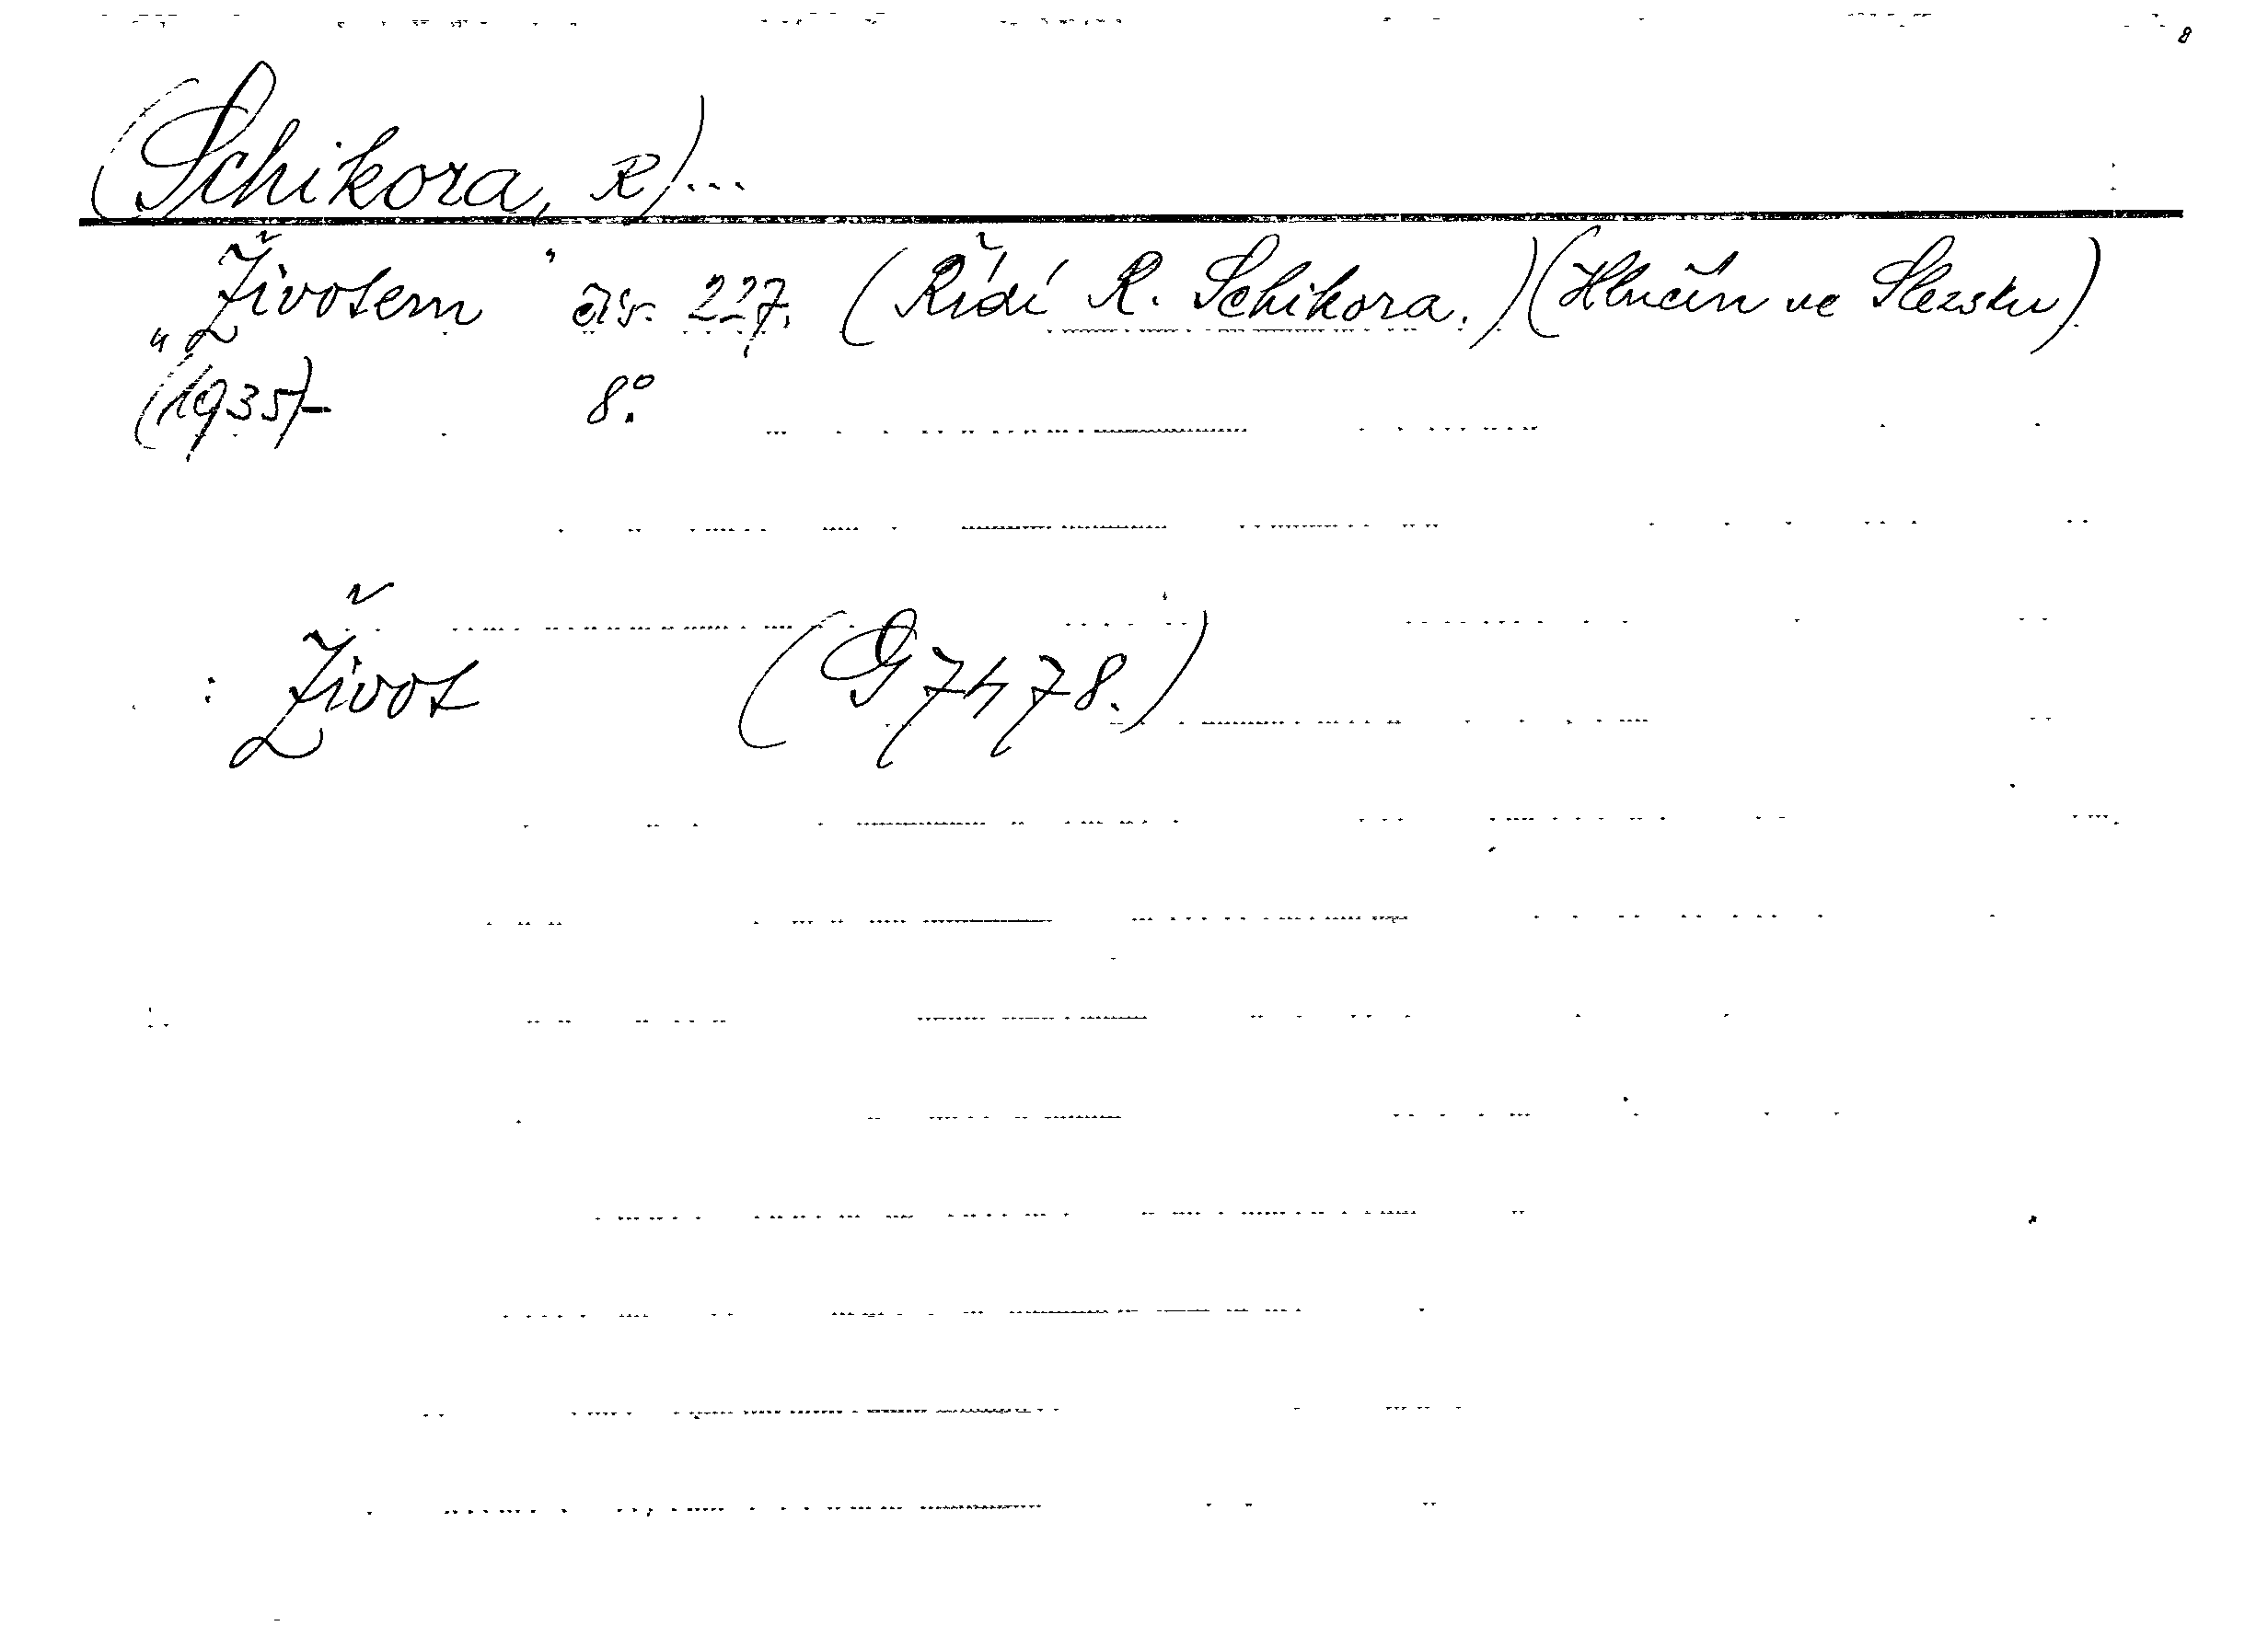 8
(Schikora, R)...
„Životem“ čís. 227. (Řídí R. Schikora.) (Hlučín ve Slezsku)
(1935)- 8°.
: Život (G 7478.)